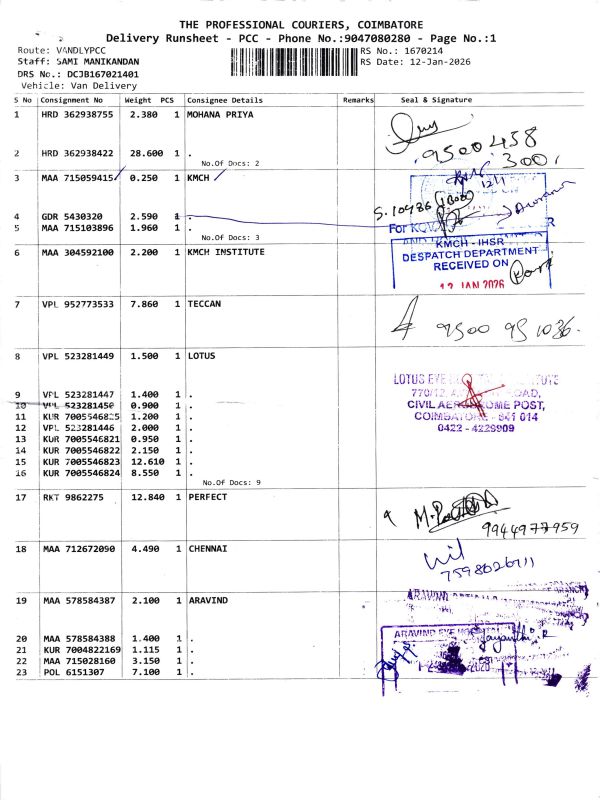 THE PROFESSIONAL COURIERS, COIMBATORE
Delivery Runsheet - PCC - Phone No.:9047080280 - Page No.:1
Route: VANDLYPCC
RS No.: 1670214
Staff: SAMI MANIKANDAN
RS Date: 12-Jan-2026
DRS No.: DCJB167021401
Vehicle: Van Delivery
S No Consignment No Weight PCS Consignee Details Remarks Seal & Signature
1 HRD 362938755 2.380 1 MOHANA PRIYA
9500458
2 HRD 362938422 28.600 1 .
3001
No.Of Docs: 2
3 MAA 715059415 0.250 1 KMCH
12/1
S. 10986 (1 Box)
4 GDR 5430320 2.590 1 .
5 MAA 715103896 1.960 1 .
For
No.Of Docs: 3
6 MAA 304592100 2.200 1 KMCH INSTITUTE
KMCH - IHSR
DESPATCH DEPARTMENT
RECEIVED ON
12 JAN 2026
7 VPL 952773533 7.860 1 TECCAN
9500 951036.
8 VPL 523281449 1.500 1 LOTUS
LOTUS EYE
9 VPL 523281447 1.400 1 .
770/12, ROAD,
10 VPL 523281450 0.900 1 .
CIVIL AERODROME POST,
11 KUR 7005546825 1.200 1 .
COIMBATORE - 641 014
12 VPL 523281446 2.000 1 .
0422 - 4229909
13 KUR 7005546821 0.950 1 .
14 KUR 7005546822 2.150 1 .
15 KUR 7005546823 12.610 1 .
16 KUR 7005546824 8.550 1 .
No.Of Docs: 9
17 RKT 9862275 12.840 1 PERFECT
9944977959
18 MAA 712672090 4.490 1 CHENNAI
7598026711
19 MAA 578584387 2.100 1 ARAVIND
ARAVIND
20 MAA 578584388 1.400 1 .
ARAVIND EYE HOSPITAL
Jayanthi. R
21 KUR 7004822169 1.115 1 .
22 MAA 715028160 3.150 1 .
23 POL 6151307 7.100 1 .